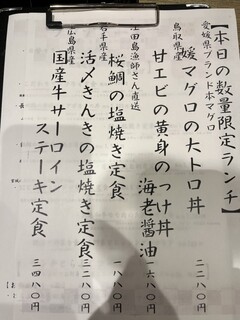 【本日の数量限定ランチ】
愛媛県ブランド本マグロ
媛マグロの大トロ丼
二二八〇円
鳥取県産
甘エビの黄身のつけ丼
海老醤油
一六八〇円
江田島漁師さん直送
桜鯛の塩焼き定食
一八八〇円
岩手県産
活〆きんきの塩焼き定食
三二八〇円
広島県産
国産牛サーロイン
ステーキ定食
三四八〇円